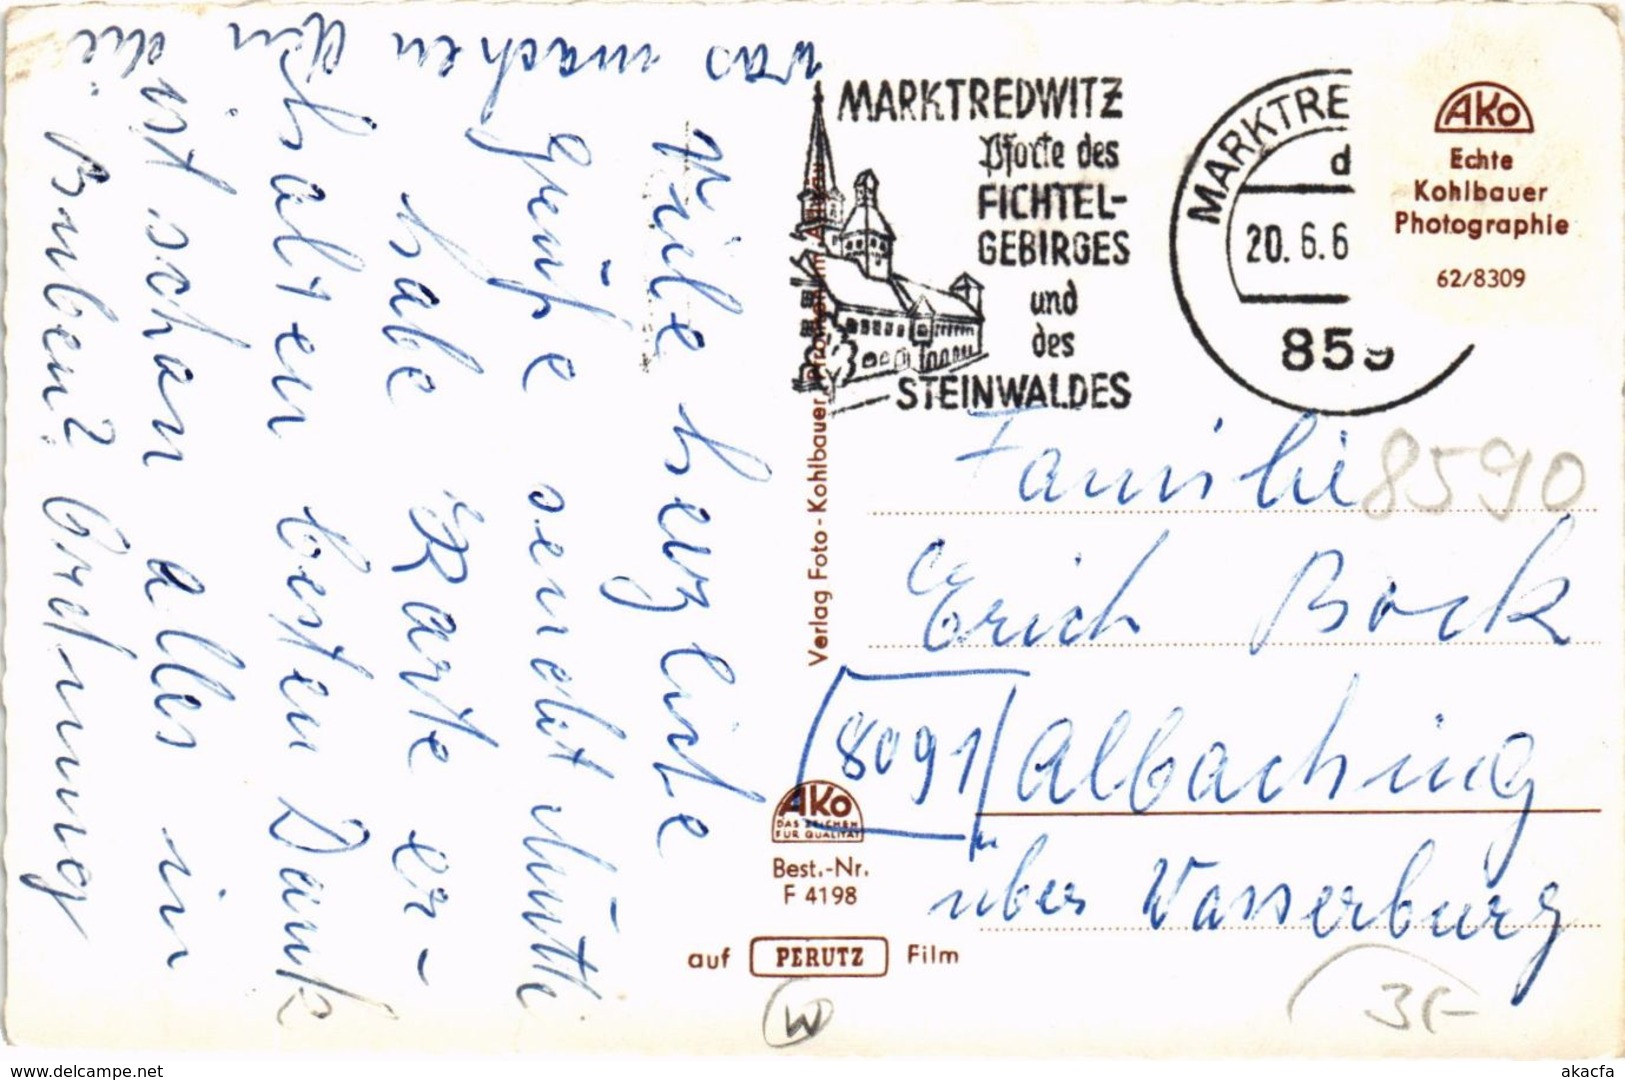 Viele herzliche
Grüße sendet Mutti
habe Karte er-
halten besten Dank
ist schon alles in
Ordnung
was machen denn
die Buben?
MARKTREDWITZ
Pforte des
FICHTEL-
GEBIRGES
und
des
STEINWALDES
MARKTRE
d
20.6.6
859
AKO
Echte
Kohlbauer
Photographie
62/8309
Verlag Foto-Kohlbauer
Familie 8590
Erich Bock
8091 Albaching
über Wasserburg
AKO
DAS ZEICHEN
FÜR QUALITÄT
Best.-Nr.
F 4198
auf PERUTZ Film
W
3,-
delcampe.net
akacfa